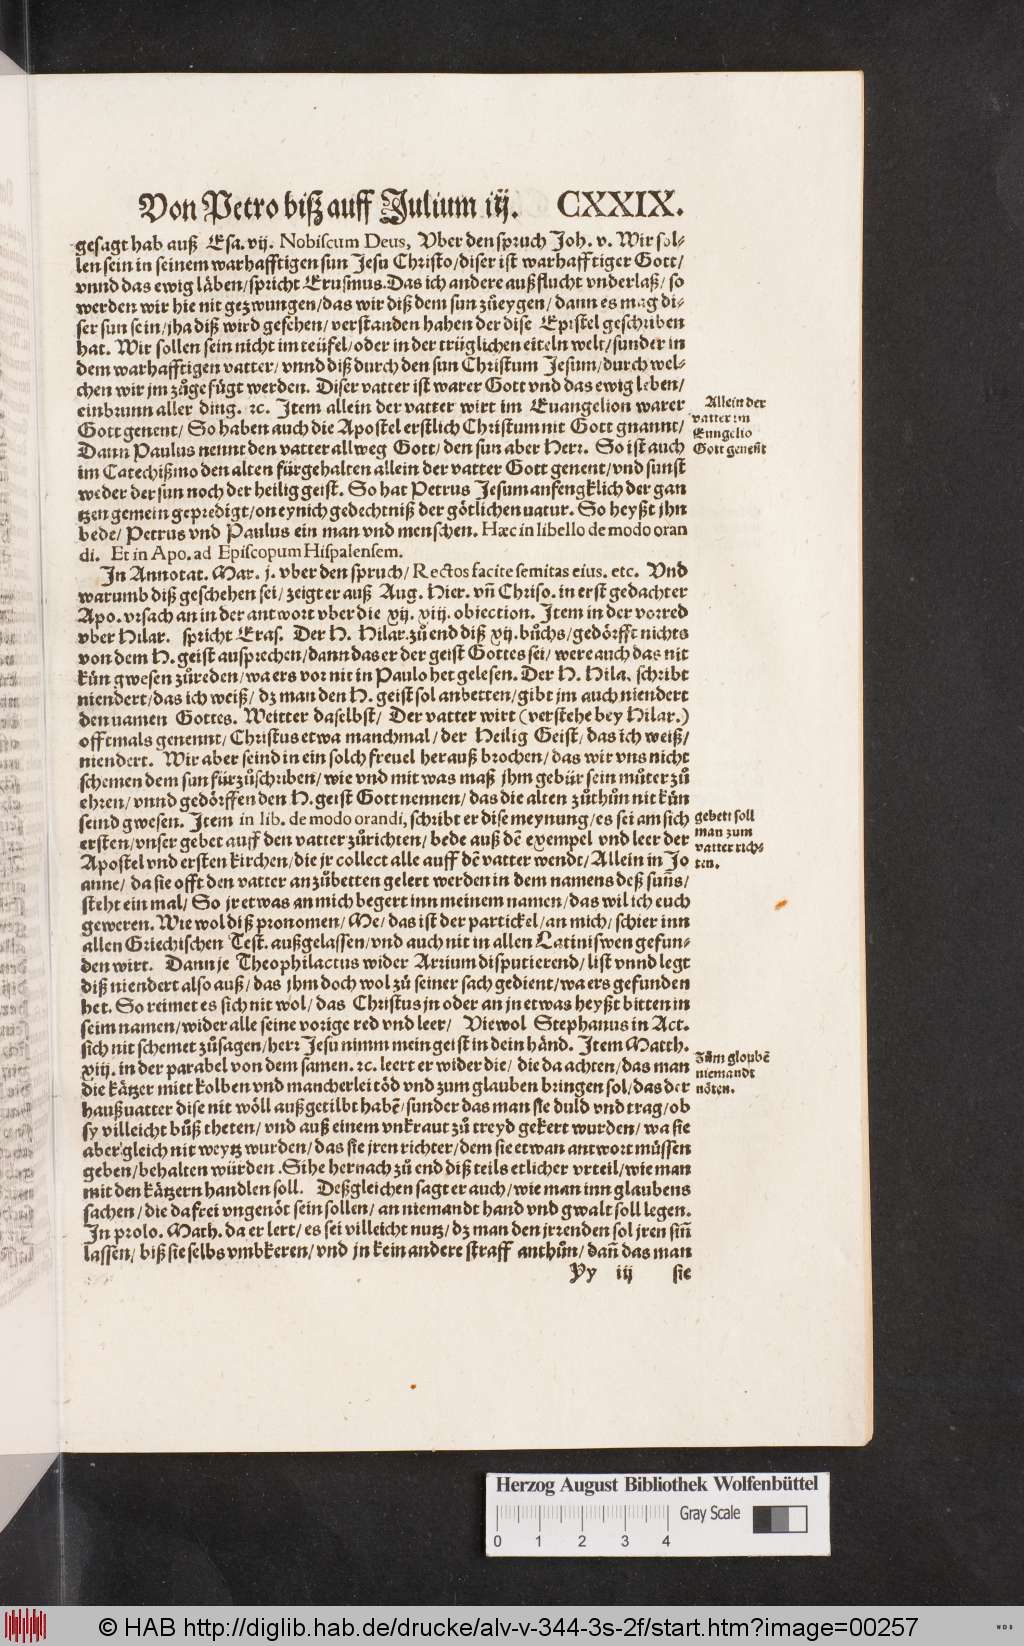 Von Petro biß auff Julium iij. CXXIX.
gesagt hab auß Esa. vij. Nobiscum Deus, Vber den spruch Joh. v. Wir sol-
len sein in seinem warhafftigen sun Jesu Christo/ diser ist warhafftiger Gott/
vnnd das ewig läben/ spricht Erasmus. Das ich andere außflucht vnderlaß/ so
werden wir hie nit gezwungen/ das wir diß dem sun zůeygen/ dann es mag di-
ser sun sein/ jha diß wird gesehen/ verstanden haben der dise Epistel geschriben
hat. Wir sollen sein nicht im teüfel/ oder in der trüglichen eiteln welt/ sunder in
dem warhafftigen vatter/ vnnd diß durch den sun Christum Jesum/ durch wel-
chen wir jm zůgefügt werden. Diser vatter ist warer Gott vnd das ewig leben/
ein brunn aller ding. ꝛc. Item allein der vatter wirt im Euangelion warer
Gott genent/ So haben auch die Apostel erstlich Christum nit Gott gnannt/
Dann Paulus nennt den vatter allweg Gott/ den sun aber Herr. So ist auch
im Catechißmo den alten fürgehalten allein der vatter Gott genent/ vnd sunst
weder der sun noch der heilig geist. So hat Petrus Jesum anfengklich der gan
tzen gemein gepredigt/ on eynich gedechtniß der götlichen natur. So heyßt jhn
bede/ Petrus vnd Paulus ein man vnd menschen. Hæc in libello de modo oran
di. Et in Apo. ad Episcopum Hispalensem.
In Annotat. Mar. j. vber den spruch/ Rectos facite semitas eius. etc. Vnd
warumb diß geschehen sei/ zeigt er auß Aug. Hier. vñ Chriso. in erst gedachter
Apo. vrsach an in der antwort vber die xij. xiij. obiection. Item in der vorred
vber Hilar. spricht Eras. Der H. Hilar. zů end diß xij. bůchs/ gedörfft nichts
von dem H. geist ausprechen/ dann das er der geist Gottes sei/ were auch das nit
kün gwesen zů reden/ wa ers vor nit in Paulo het gelesen. Der H. Hila. schribt
niendert/ das ich weiß/ dz man den H. geist sol anbetten/ gibt jm auch niendert
den namen Gottes. Weitter daselbst/ Der vatter wirt (verstehe bey Hilar.)
offtmals genennt/ Christus etwa manchmal/ der Heilig Geist/ das ich weiß/
niendert. Wir aber seind in ein solch freuel herauß brochen/ das wir vns nicht
schemen dem sun fürzůschriben/ wie vnd mit was maß jhm gebür sein můter zů
ehren/ vnnd gedörffen den H. geist Gott nennen/ das die alten zůthůn nit kün
seind gwesen. Item in lib. de modo orandi, schribt er dise meynung/ es sei am sich
ersten/ vnser gebet auff den vatter zůrichten/ bede auß dē exempel vnd leer der
Apostel vnd ersten kirchen/ die jr collect alle auff dē vatter wendt/ Allein in Jo
anne/ da sie offt den vatter anzůbetten gelert werden in dem namens deß suñs/
steht ein mal/ So jr etwas an mich begert inn meinem namen/ das wil ich euch
geweren. Wie wol diß pronomen/ Me/ das ist der partickel/ an mich/ schier inn
allen Griechischen Test. außgelassen/ vnd auch nit in allen Latiniswen gefun-
den wirt. Dann je Theophilactus wider Arrium disputierend/ list vnnd legt
diß niendert also auß/ das jhm doch wol zů seiner sach gedient/ wa ers gefunden
het. So reimet es sich nit wol/ das Christus jn oder an jn etwas heyßt bitten in
seim namen/ wider alle seine vorige red vnd leer/ Viewol Stephanus in Act.
sich nit schemet zůsagen/ herr Jesu nimm mein geist in dein händ. Item Matth.
xiij. in der parabel von dem samen. ꝛc. leert er wider die/ die da achten/ das man
die kätzer mitt kolben vnd mancherlei töd vnd zum glauben bringen sol/ das der
haußuatter dise nit wöll außgetilbt habē/ sunder das man sie duld vnd trag/ ob
sy villeicht bůß theten/ vnd auß einem vnkraut zů treyd gekert wurden/ wa sie
aber gleich nit weytz wurden/ das sie jren richter/ dem sie etwan antwort müssen
geben/ behalten würden. Sihe hernach zů end diß teils etlicher vrteil/ wie man
mit den kätzern handlen soll. Deßgleichen sagt er auch/ wie man inn glaubens
sachen/ die da frei vngenöt sein sollen/ an niemandt hand vnd gwalt soll legen.
In prolo. Math. da er lert/ es sei villeicht nutz/ dz man den jrrenden sol jren siñ
lassen/ biß sie selbs vmbkeren/ vnd jn kein andere straff anthůn/ dañ das man
Yy iij sie
Allein der
vatter im
Eungelio
Gott geneñt
gebett soll
man zum
vatter rich-
ten.
Zům gloubē
niemandt
nöten.
Herzog August Bibliothek Wolfenbüttel
Gray Scale
0 1 2 3 4
© HAB http://diglib.hab.de/drucke/alv-v-344-3s-2f/start.htm?image=00257